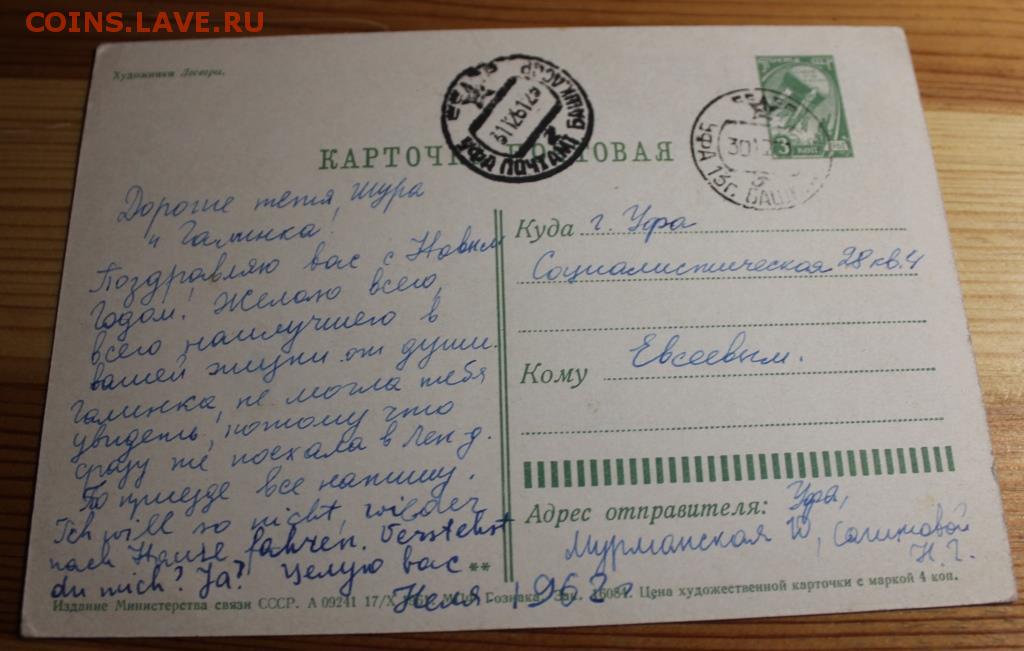 COINS.LAVE.RU
Художники Лесегри.
УФА ПОЧТАМТ БАШК.АССР
УФА 13г. БАШК
3 КОП
КАРТОЧКА ПОЧТОВАЯ
Дорогие тетя Шура
и Галинка!
Поздравляю вас с Новым
Годом! Желаю всего,
всего наилучшего в
вашей жизни от души.
Галинка, не могла тебя
увидеть, потому что
сразу же поехала в Лен-д.
По приезде все напишу.
Ich will so nicht wieder
nach Hause fahren. Verstehst
du mich? Ja? Целую вас
Неля 1962 г
Куда г. Уфа
Социалистическая 28 кв. 4
Кому Евсеевым.
Адрес отправителя: Уфа,
Мурманская 10, Салимовой
Н. Г.
**
Издание Министерства связи СССР. А 09241 17/X Гознака. Зак. 16084. Цена художественной карточки с маркой 4 коп.